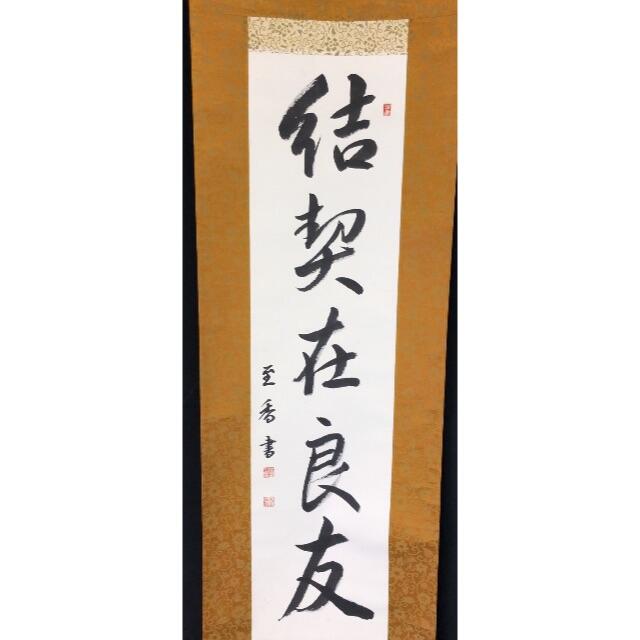 結契在良友
至香書